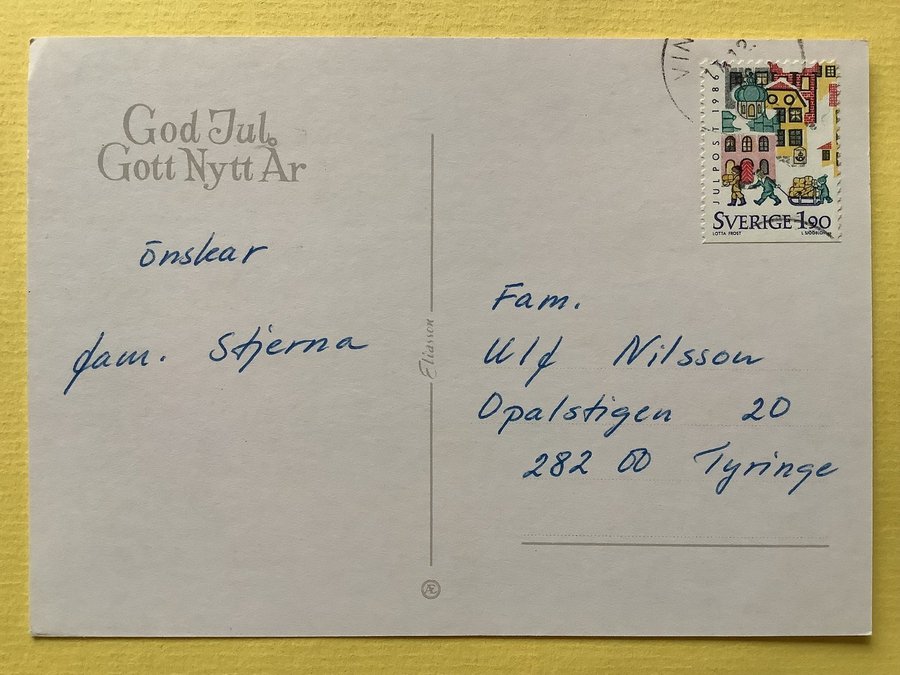 God Jul,
Gott Nytt År
önskar
fam. Stjerna
Eliasson
Æ
JULPOST 1986
SVERIGE 1.90
LOTTA FROST
Fam.
Ulf Nilsson
Opalstigen 20
282 00 Tyringe